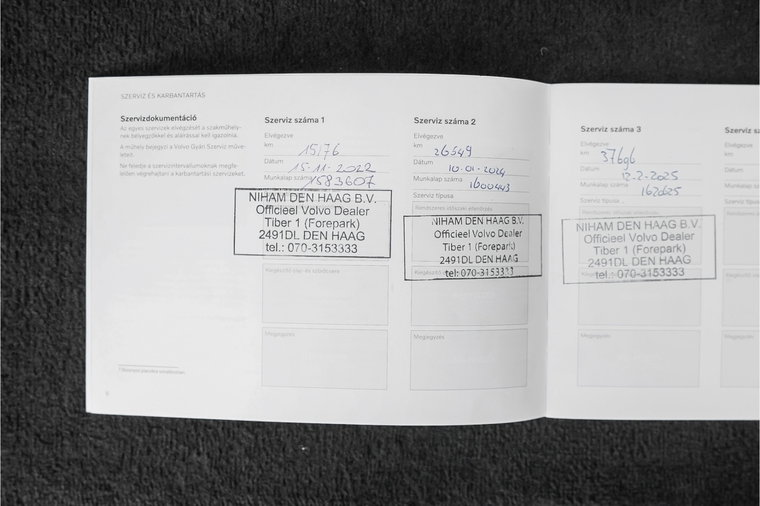 SZERVIZ ÉS KARBANTARTÁS
Szervizdokumentáció
Az egyes szervizek elvégzését a szakműhely-
nek bélyegzőkkel és aláírással kell igazolnia.
A műhely bejegyzi a Volvo Gyári Szerviz műve-
leteit.
Ne feledje a szervizintervallumoknak megfe-
lelően végrehajtani a karbantartási szervizeket.
Szerviz száma 1
Elvégezve
km 15176
Dátum 15-11-2022
Munkalap száma 1583607
NIHAM DEN HAAG B.V.
Officieel Volvo Dealer
Tiber 1 (Forepark)
2491DL DEN HAAG
tel.: 070-3153333
Kiegészítő olaj- és szűrőcsere
Megjegyzés
Szerviz száma 2
Elvégezve
km 26549
Dátum 10-01-2024
Munkalap száma 1600443
Szerviz típusa
Rendszeres időszaki ellenőrzés
NIHAM DEN HAAG B.V.
Officieel Volvo Dealer
Tiber 1 (Forepark)
2491DL DEN HAAG
tel: 070-3153333
Megjegyzés
Szerviz száma 3
Elvégezve
km 37696
Dátum 12-2-2025
Munkalap száma 1620625
Szerviz típusa
NIHAM DEN HAAG B.V.
Officieel Volvo Dealer
Tiber 1 (Forepark)
2491DL DEN HAAG
tel.: 070-3153333
Megjegyzés
Szerviz
Elvégezve
km
Dátum
Munkalap
Szerviz